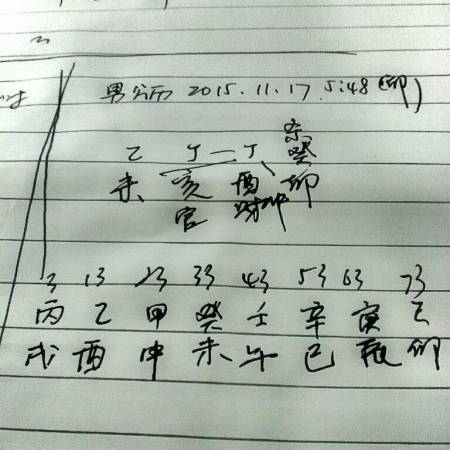 男公历 2015.11.17 5:48 (卯)
杀
乙 丁 丁 癸
未 亥 酉 卯
官 财 冲
3 13 23 33 43 53 63 73
丙 乙 甲 癸 壬 辛 庚 己
戌 酉 申 未 午 巳 辰 卯